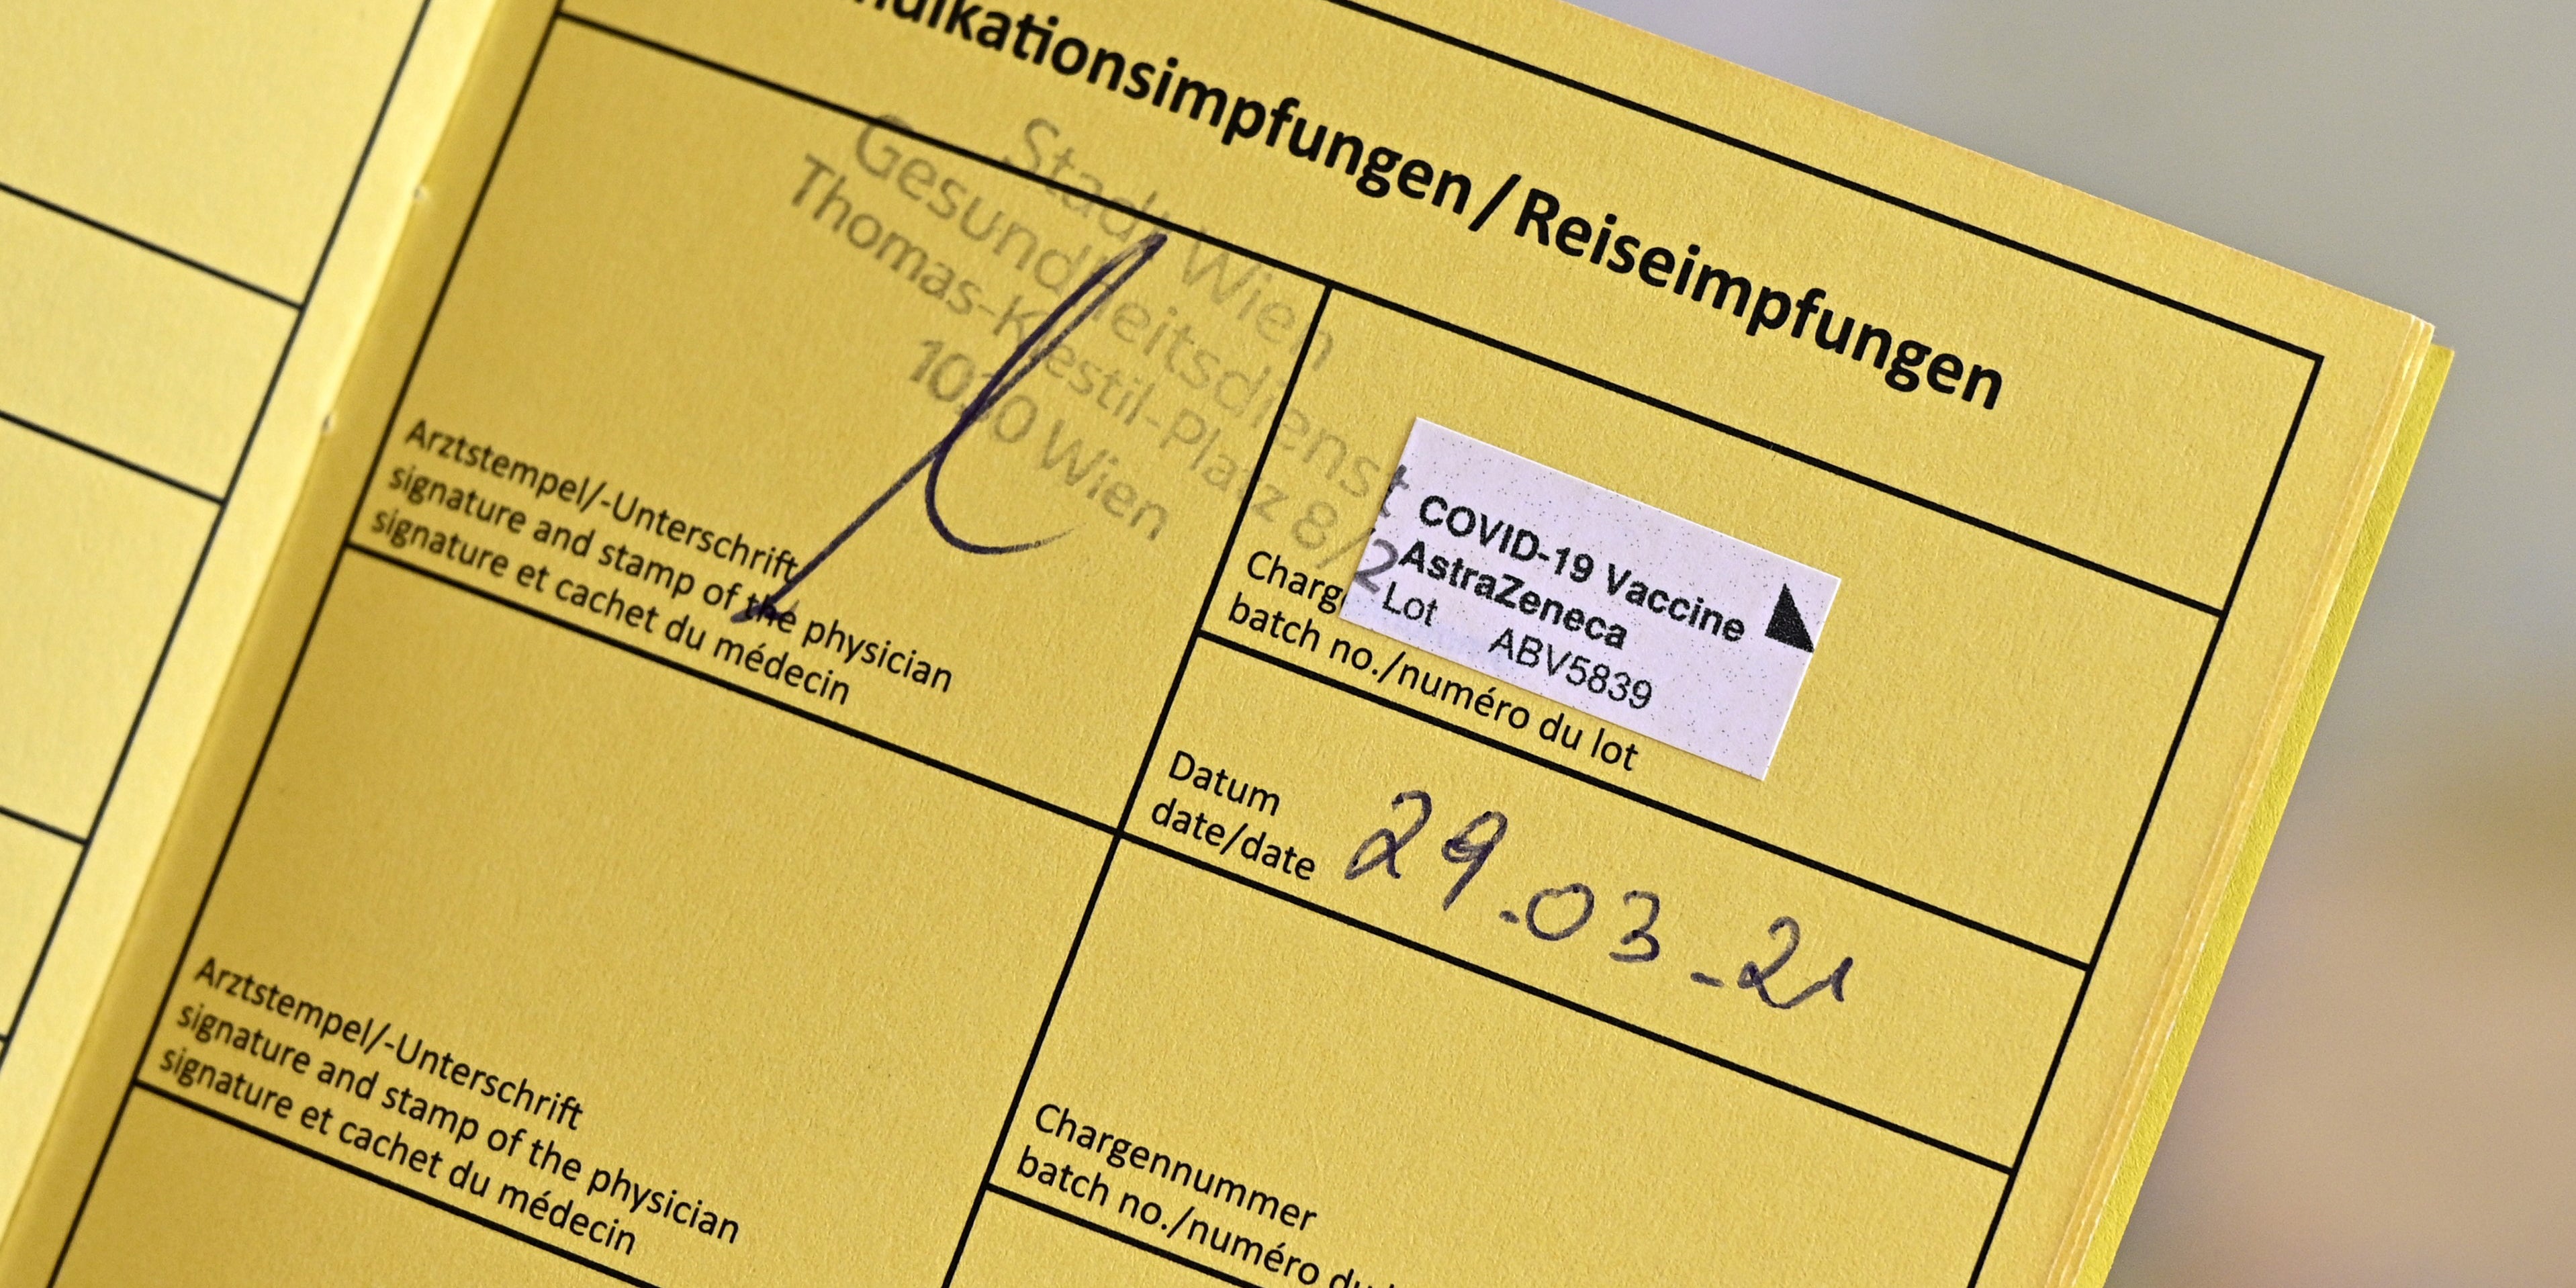 ndikationsimpfungen / Reiseimpfungen
Stadt Wien
Gesundheitsdienst
Thomas-Klestil-Platz 8/2
1030 Wien
Arztstempel/-Unterschrift
signature and stamp of the physician
signature et cachet du médecin
COVID-19 Vaccine
AstraZeneca
Lot ABV5839
Charg
batch no./numéro du lot
Datum
date/date
29.03.21
Arztstempel/-Unterschrift
signature and stamp of the physician
signature et cachet du médecin
Chargennummer
batch no./numéro du